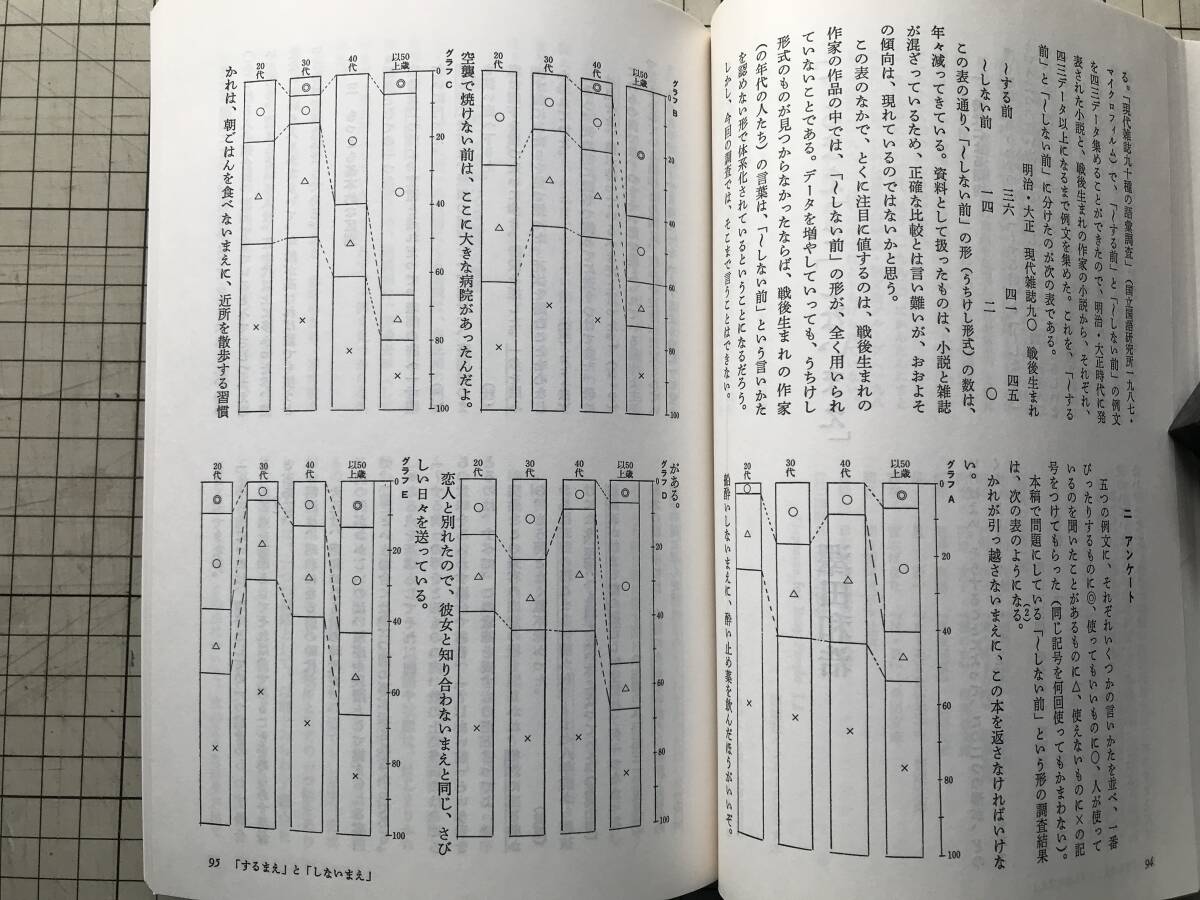 る。「現代雑誌九十種の語彙調査」(国立国語研究所一九八七・
マイクロフィルム)で、「〜する前」と「〜しない前」の例文
を四三データ集めることができたので、明治・大正時代に発
表された小説と、戦後生まれの作家の小説から、それぞれ、
四三データ以上になるまで例文を集めた。これを、「〜する
前」と「〜しない前」に分けたのが次の表である。
明治・大正 現代雑誌九〇 戦後生まれ
〜する前 三六 四一 四五
〜しない前 一四 二 〇
この表の通り、「〜しない前」の形(うちけし形式)の数は、
年々減ってきている。資料として扱ったものは、小説と雑誌
が混ざっているため、正確な比較とは言い難いが、おおよそ
の傾向は、現れているのではないかと思う。
この表のなかで、とくに注目に値するのは、戦後生まれの
作家の作品の中では、「〜しない前」の形が、全く用いられ
ていないことである。データを増やしていっても、うちけし
形式のものが見つからなかったならば、戦後生まれの作家
(の年代の人たち)の言葉は、「〜しない前」という言いかた
を認めない形で体系化されているということになるだろう。
しかし、今回の調査では、そこまで言うことはできない。
二 アンケート
五つの例文に、それぞれいくつかの言いかたを並べ、一番
ぴったりするものに◎、使ってもいいものに○、人が使って
いるのを聞いたことがあるものに△、使えないものに×の記
号をつけてもらった(同じ記号を何回使ってもかまわない)。
本稿で問題にしている「〜しない前」という形の調査結果
は、次の表のようになる。(2)
かれが引っ越さないまえに、この本を返さなければいけな
い。
グラフA
0 20 40 60 80 100
以50歳上 ◎ ○ △ ×
40代 ○ △ ×
30代 ○ △ ×
20代 ○ △ ×
船酔いしないまえに、酔い止め薬を飲んだほうがいいぞ。
94
グラフB
0 20 40 60 80 100
以50歳上 ◎ ○ △ ×
40代 ◎ ○ △ ×
30代 ○ △ ×
20代 ○ △ ×
空襲で焼けない前は、ここに大きな病院があったんだよ。
グラフC
0 20 40 60 80 100
以50歳上 ◎ ○ △ ×
40代 ○ △ ×
30代 ◎ ○ △ ×
20代 ○ △ ×
かれは、朝ごはんを食べないまえに、近所を散歩する習慣
がある。
グラフD
0 20 40 60 80 100
以50歳上 ◎ ○ △ ×
40代 ○ △ ×
30代 ○ △ ×
20代 ○ △ ×
恋人と別れたので、彼女と知り合わないまえと同じ、さび
しい日々を送っている。
グラフE
0 20 40 60 80 100
以50歳上 ◎ ○ △ ×
40代 ○ △ ×
30代 ○ △ ×
20代 ◎ ○ △ ×
95 「するまえ」と「しないまえ」